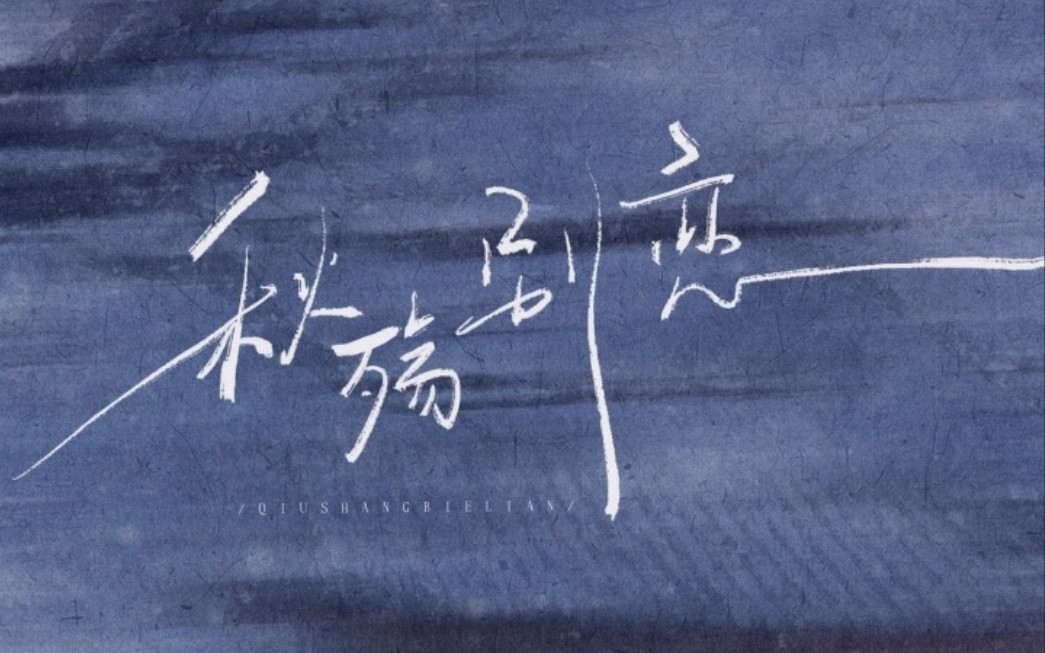 秋殇别恋
/QIUSHANGBIELIAN/